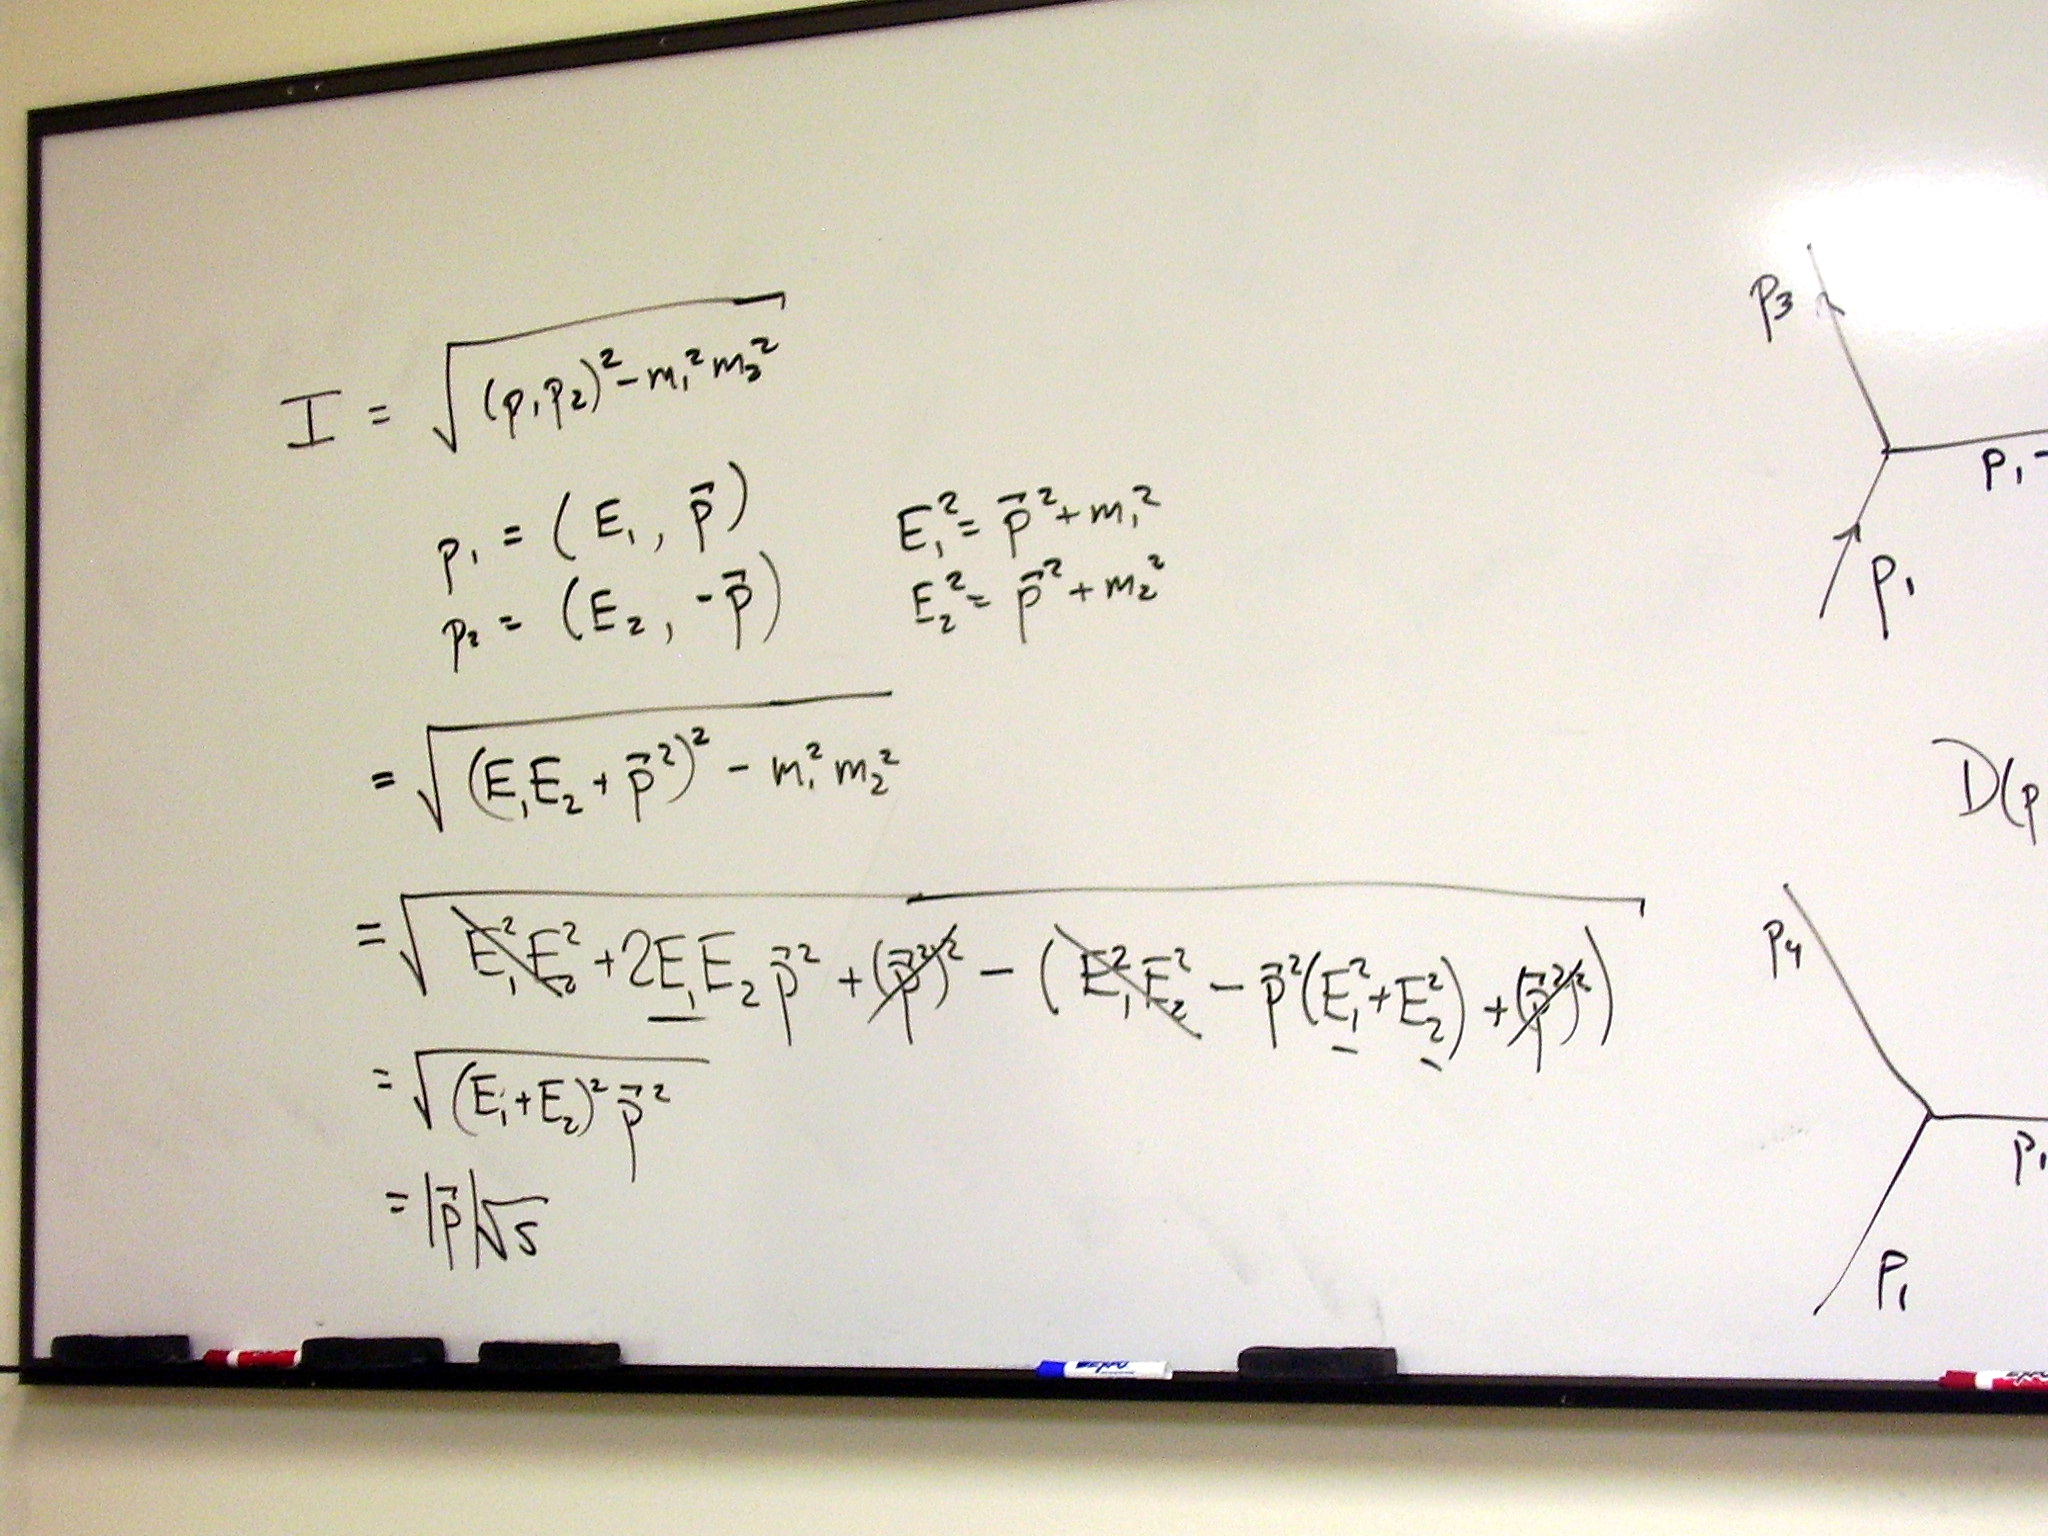 I = √((p₁p₂)² - m₁² m₂²)
p₁ = (E₁, p⃗)
E₁² = p⃗² + m₁²
p₂ = (E₂, -p⃗)
E₂² = p⃗² + m₂²
= √((E₁E₂ + p⃗²)² - m₁² m₂²)
= √(E₁²E₂² + 2E₁E₂p⃗² + (p⃗²)² - (E₁²E₂² - p⃗²(E₁²+E₂²) + (p⃗²)²))
= √((E₁+E₂)² p⃗²)
= |p⃗|√s
p₃
p₁-
p₁
D(p
p₄
p₁
p₁
EXPO